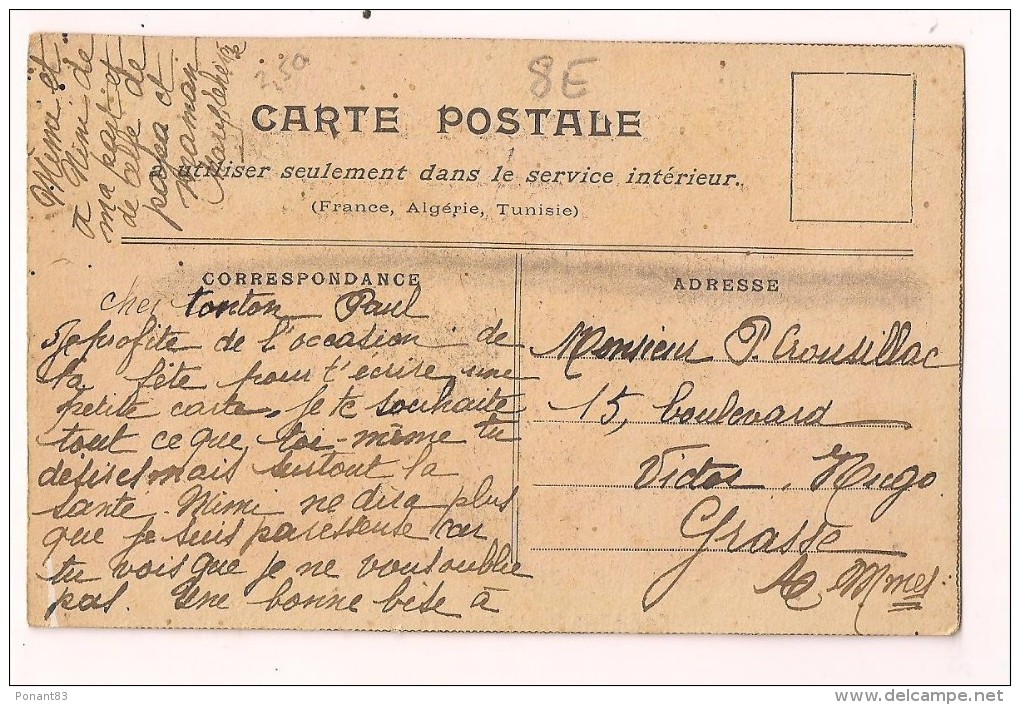 8E
3,50
CARTE POSTALE
à utiliser seulement dans le service intérieur.
(France, Algérie, Tunisie)
CORRESPONDANCE
cher tonton Paul
Je profite de l'occasion de
la fête pour t'écrire une
petite carte. Je te souhaite
tout ce que toi-même tu
desires mais surtout la
santé. Mimi ne dira plus
que je suis paresseuse car
tu vois que je ne vous oublie
pas. Une bonne bise à
Mimi et
à Nini de
ma part et
de celle de
papa et
maman
ADRESSE
Monsieur P. Crousillac
15, boulevard
Victor Hugo
Grasse
A. Mmes
Ponant83
delcampe.net